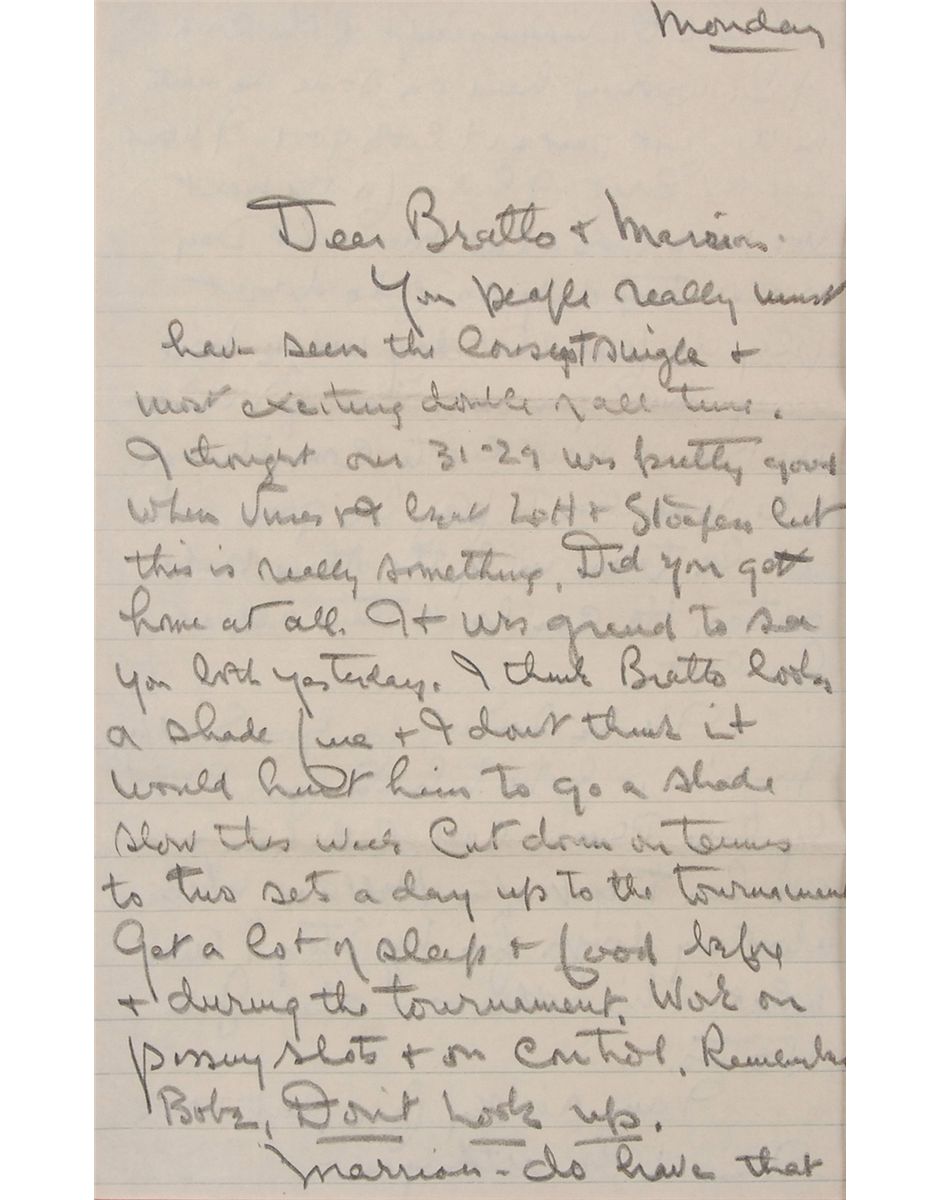 Monday
Dear Bratto & Marrion.
You people really must
have seen the longest single &
most exciting double of all time.
I thought our 31-29 was pretty good
when Vines & I beat Lott & Stoefen but
this is really something. Did you get
home at all. It was grand to see
you both yesterday. I think Bratto looks
a shade fine & I dont think it
would hurt him to go a shade
slow this week Cut down on tennis
to two sets a day up to the tournament
Get a lot of sleep & food before
& during the tournament. Work on
passing shots & on control. Remember
Bobz, Don't look up.
Marrion - do have that